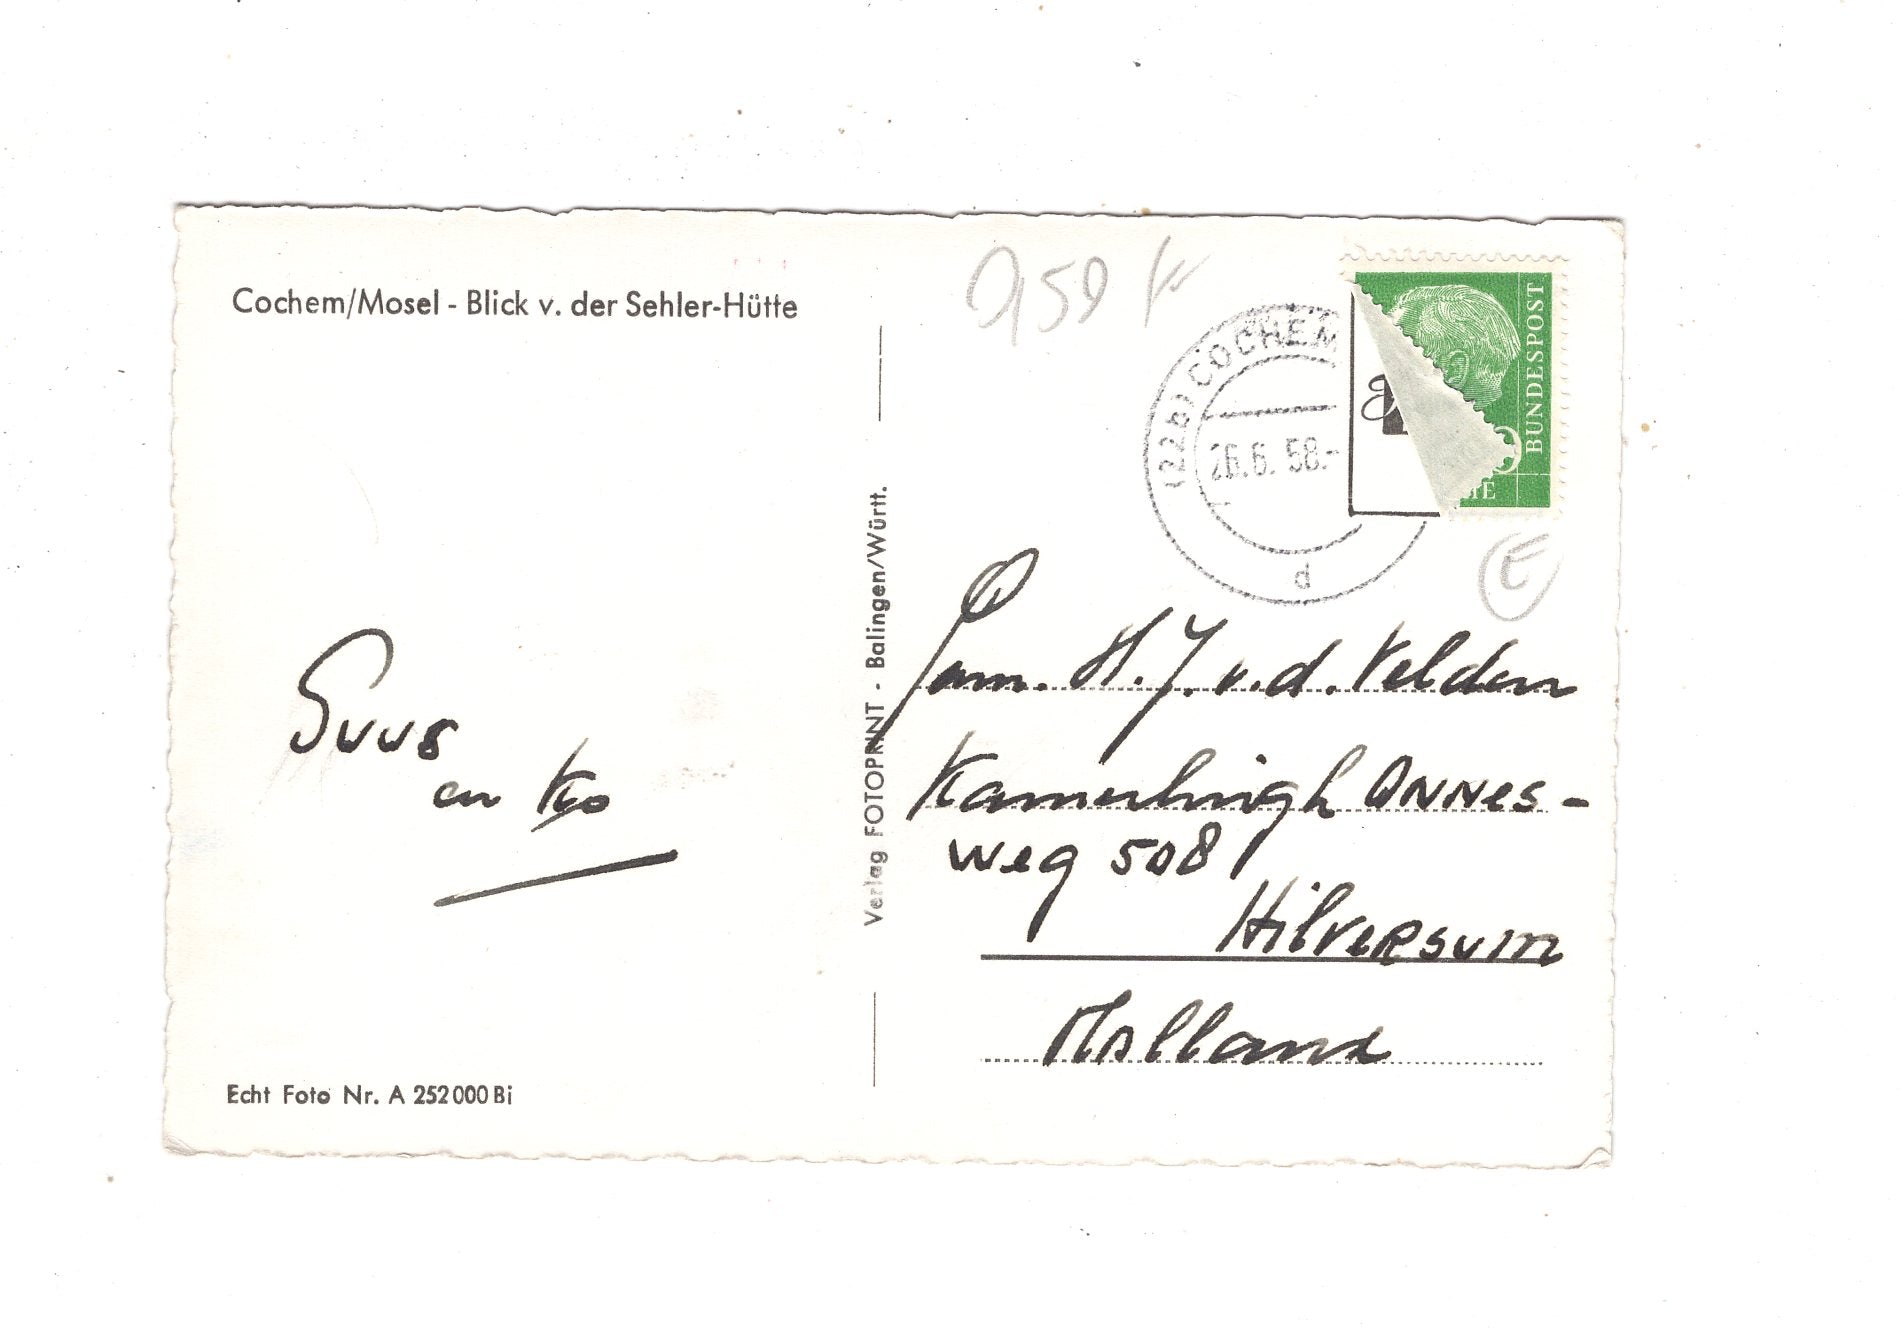 Cochem/Mosel - Blick v. der Sehler-Hütte
Suus
en Ko
Echt Foto Nr. A 252 000 Bi
Verlag FOTOPRINT - Balingen/Württ.
0,50
(22b) COCHEM
26.6.58.-
d
BUNDESPOST
E
Fam. H.J. v.d. Velden
Kamerlingh ONNes-
weg 508
HilveRsum
Holland